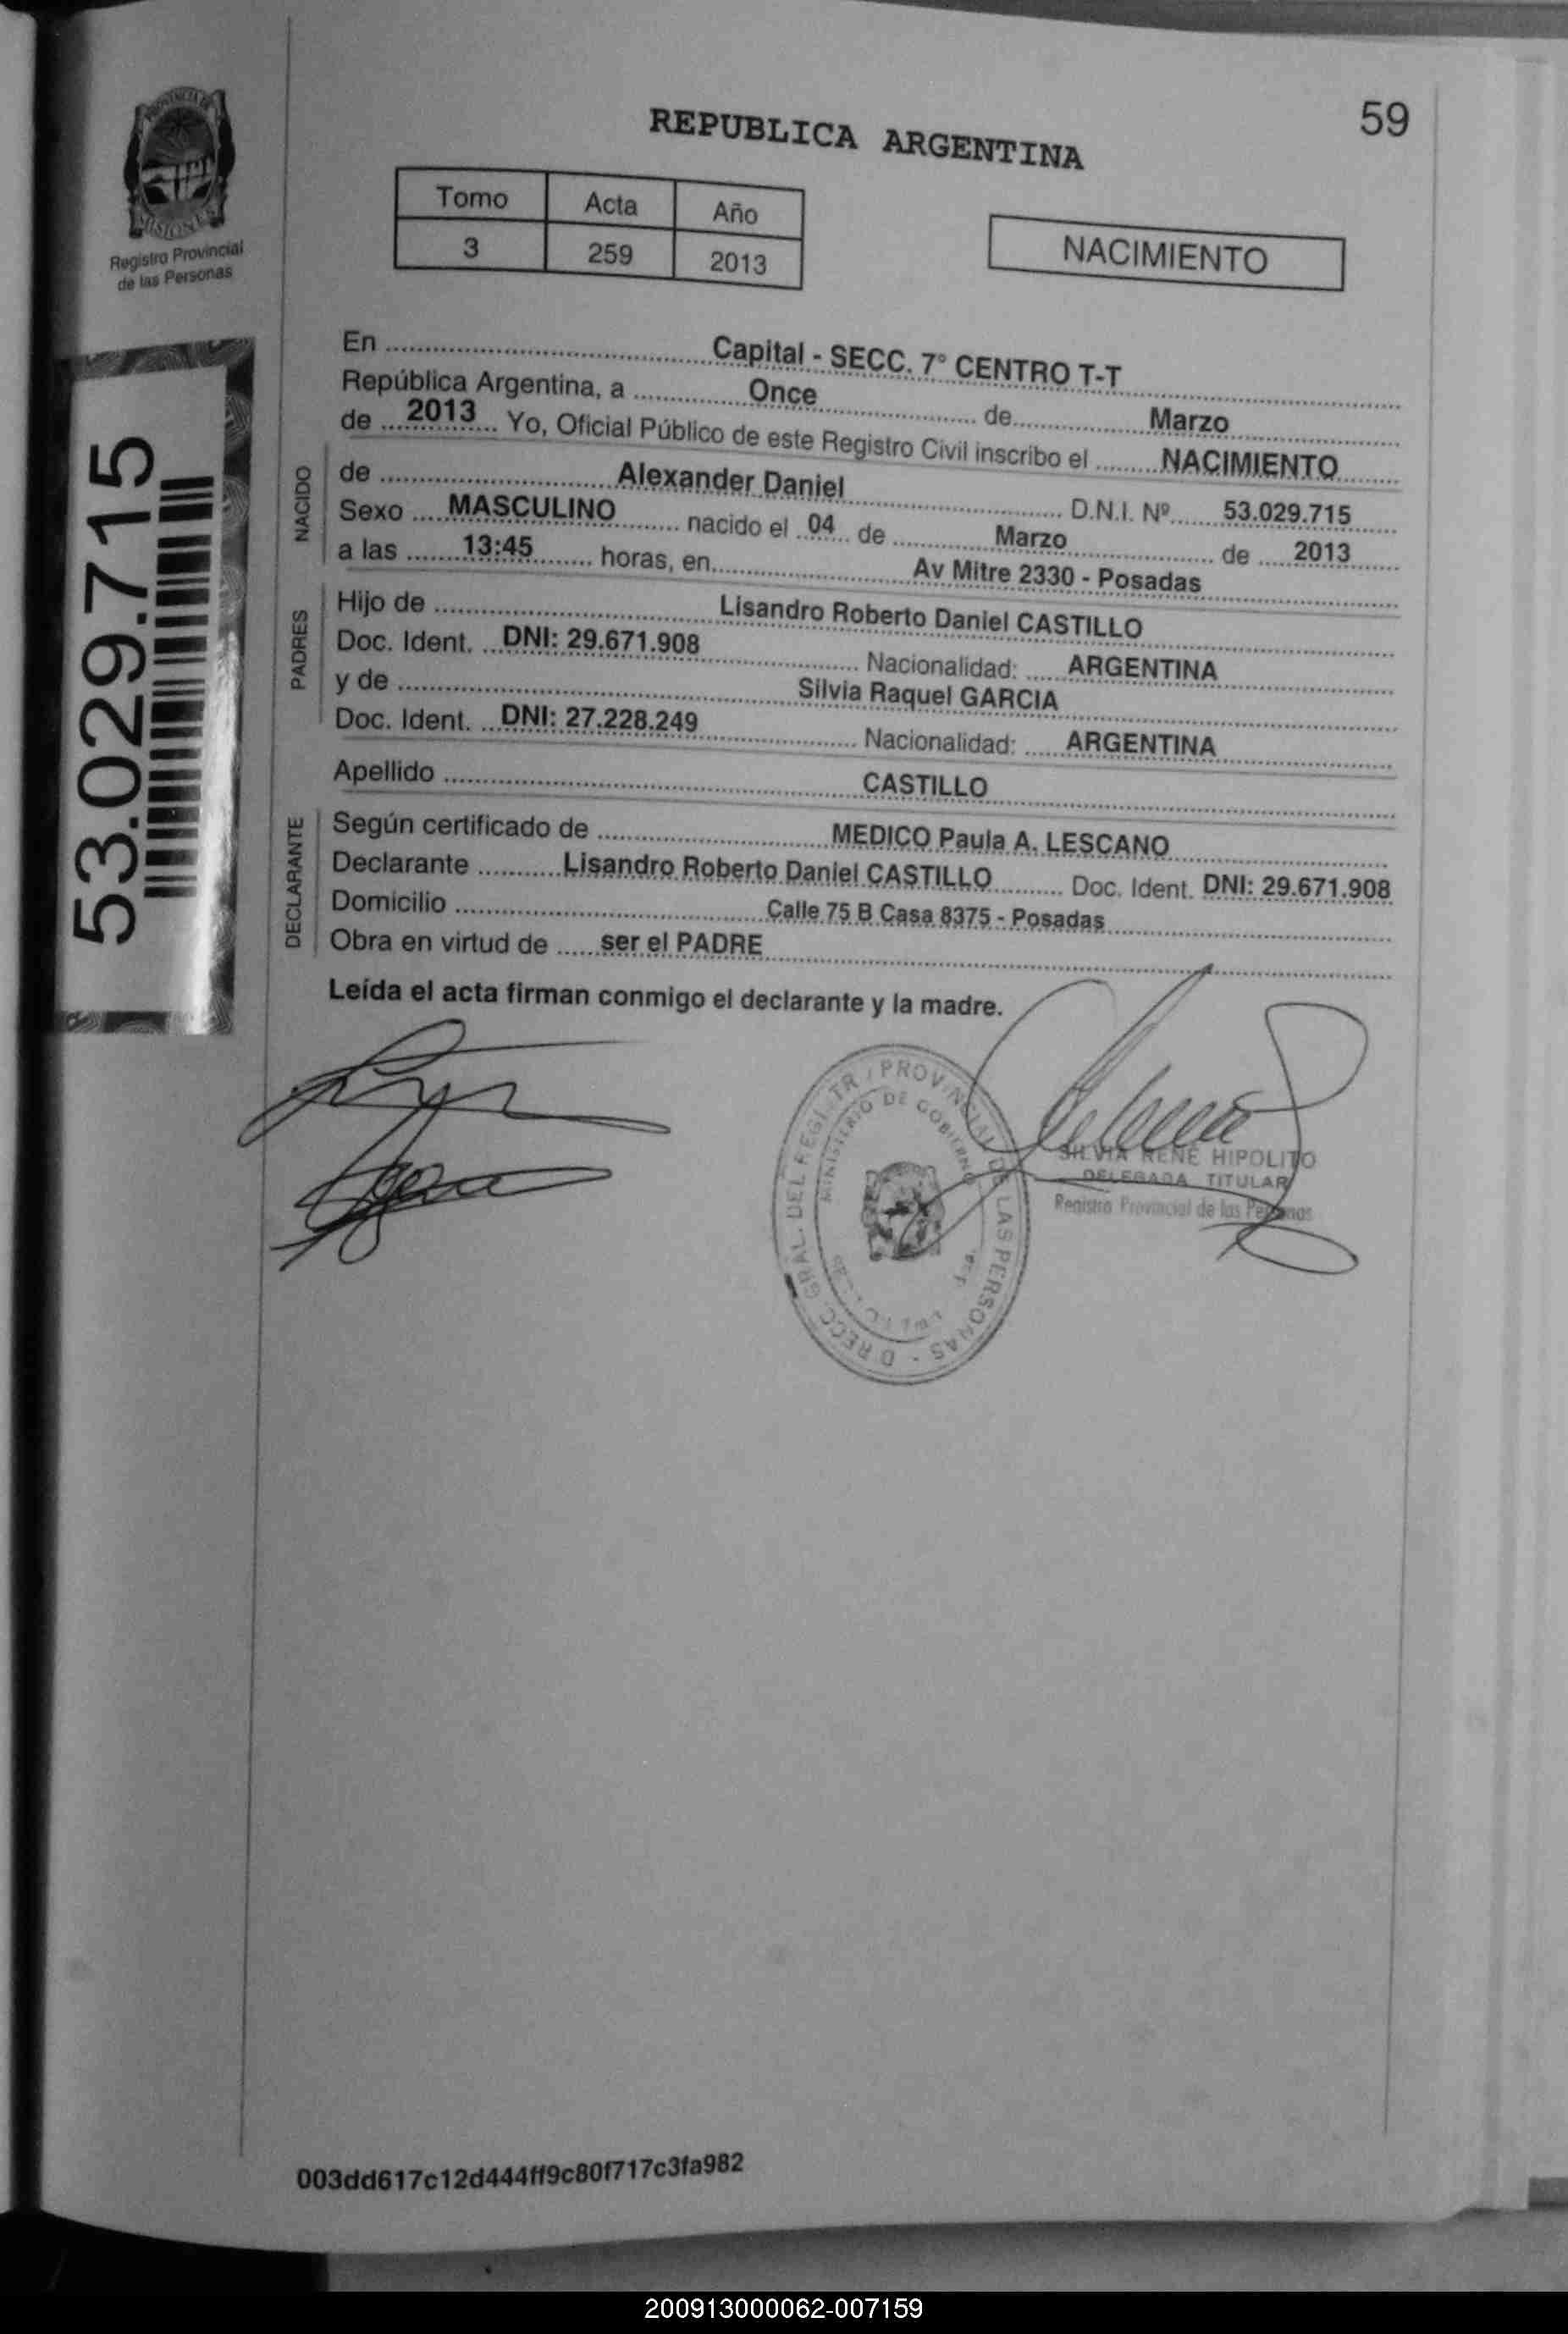 59
REPUBLICA ARGENTINA
PROVINCIA DE
MISIONES
Registro Provincial
de las Personas
Tomo Acta Año
3 259 2013
NACIMIENTO
53.029.715
En Capital - SECC. 7° CENTRO T-T
República Argentina, a Once de Marzo
de 2013 Yo, Oficial Público de este Registro Civil inscribo el NACIMIENTO
NACIDO
de Alexander Daniel D.N.I. Nº 53.029.715
Sexo MASCULINO nacido el 04 de Marzo de 2013
a las 13:45 horas, en Av Mitre 2330 - Posadas
PADRES
Hijo de Lisandro Roberto Daniel CASTILLO
Doc. Ident. DNI: 29.671.908 Nacionalidad: ARGENTINA
y de Silvia Raquel GARCIA
Doc. Ident. DNI: 27.228.249 Nacionalidad: ARGENTINA
Apellido CASTILLO
DECLARANTE
Según certificado de MEDICO Paula A. LESCANO
Declarante Lisandro Roberto Daniel CASTILLO Doc. Ident. DNI: 29.671.908
Domicilio Calle 75 B Casa 8375 - Posadas
Obra en virtud de ser el PADRE
Leída el acta firman conmigo el declarante y la madre.
PROVINCIAL DE LAS PERSONAS
MINISTERIO DE GOBIERNO
SILVIA RENE HIPOLITO
DELEGADA TITULAR
Registro Provincial de las Personas
003dd617c12d444ff9c80f717c3fa982
200913000062-007159